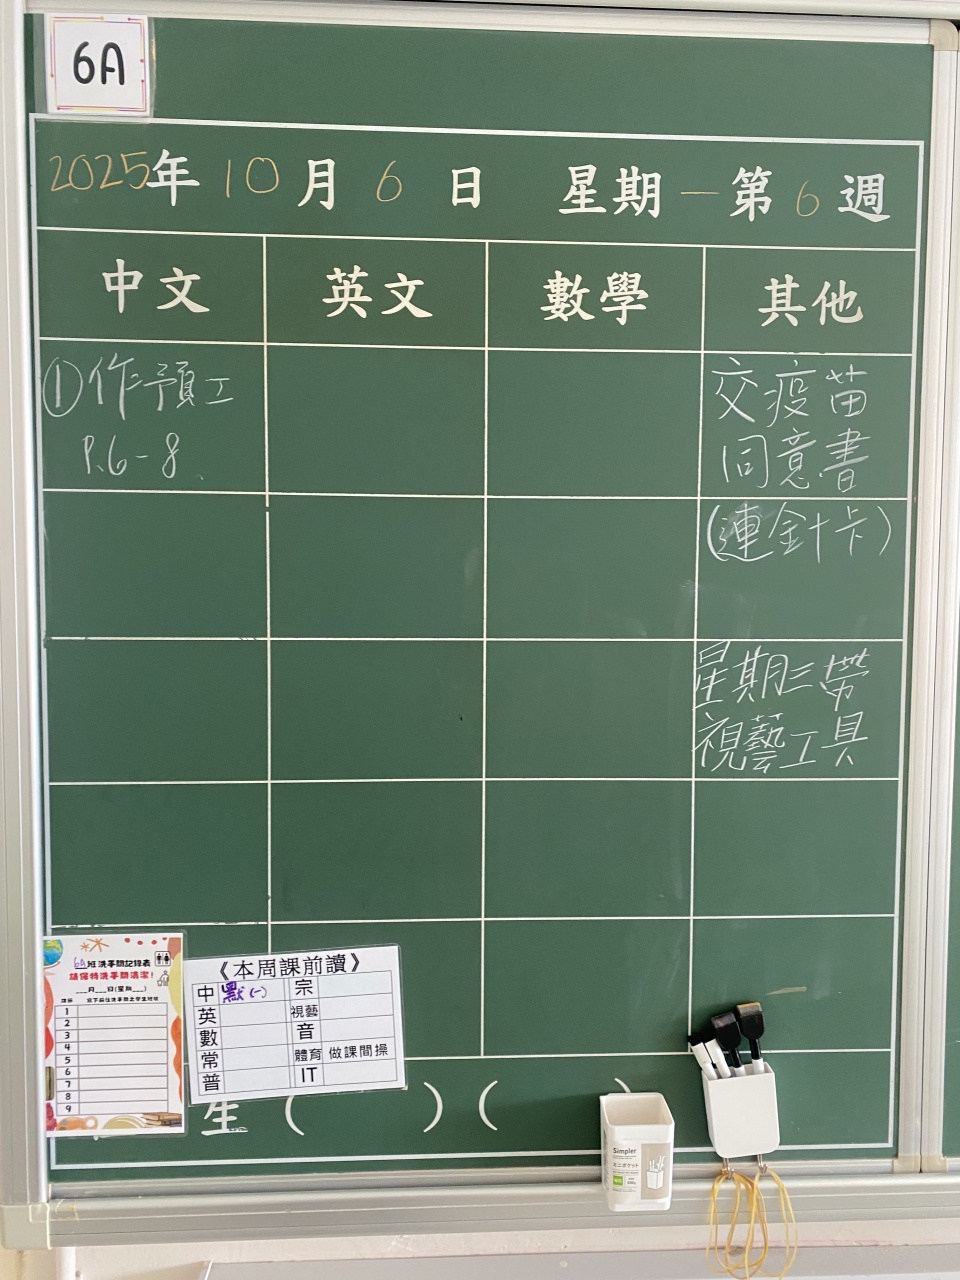 6A
2025年 10月 6日 星期一 第6週
中文 英文 數學 其他
①作預工
P.6-8
交疫苗
同意書
(連針卡)
星期三帶
視藝工具
6A班洗手間記錄表
請保持洗手間清潔!
___月___日(星期___)
課節
1
2
3
4
5
6
7
8
9
《本周課前讀》
中 默(一) 宗
英 視藝
數 音
常 體育 做課間操
普 IT
生 ( ) ( )
Simpler
ミニポケット